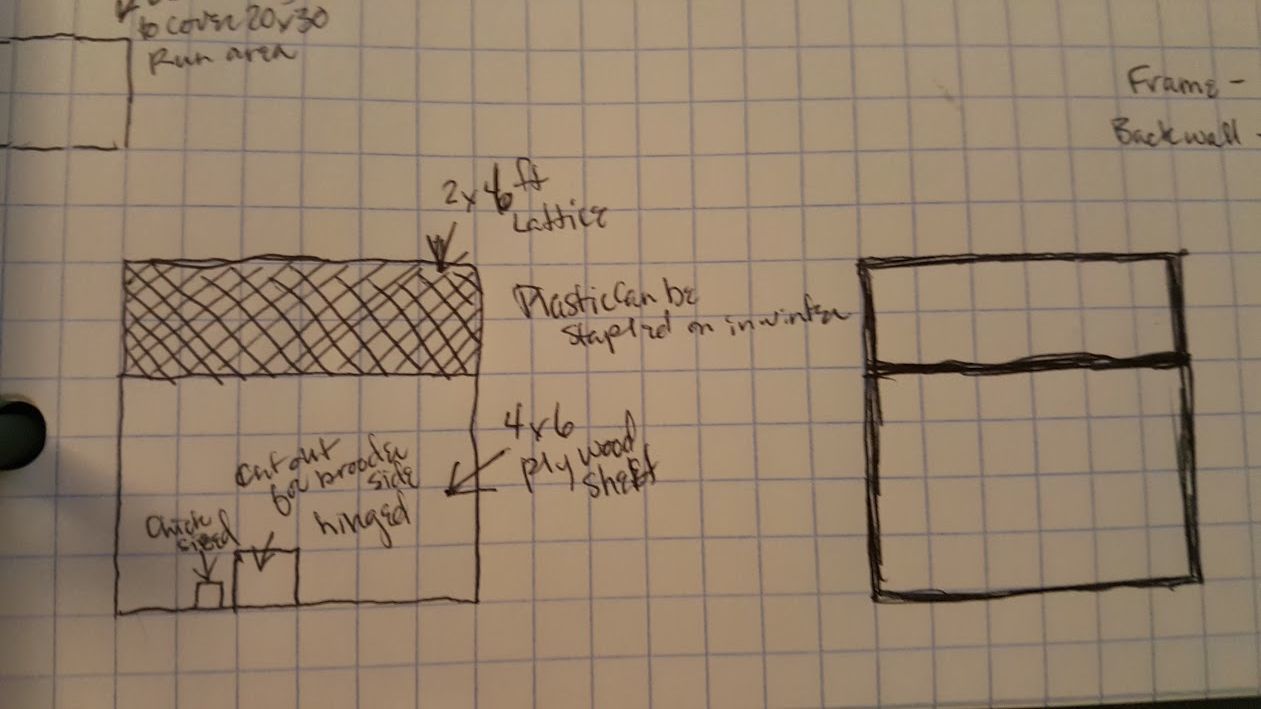 to cover 20x30
Run area
Frame -
Back wall -
2x6 ft
Lattice
Plastic Can be
stapled on in winter
4x6
plywood
sheet
Cut out
for brooder
side
hinged
Chick
sized